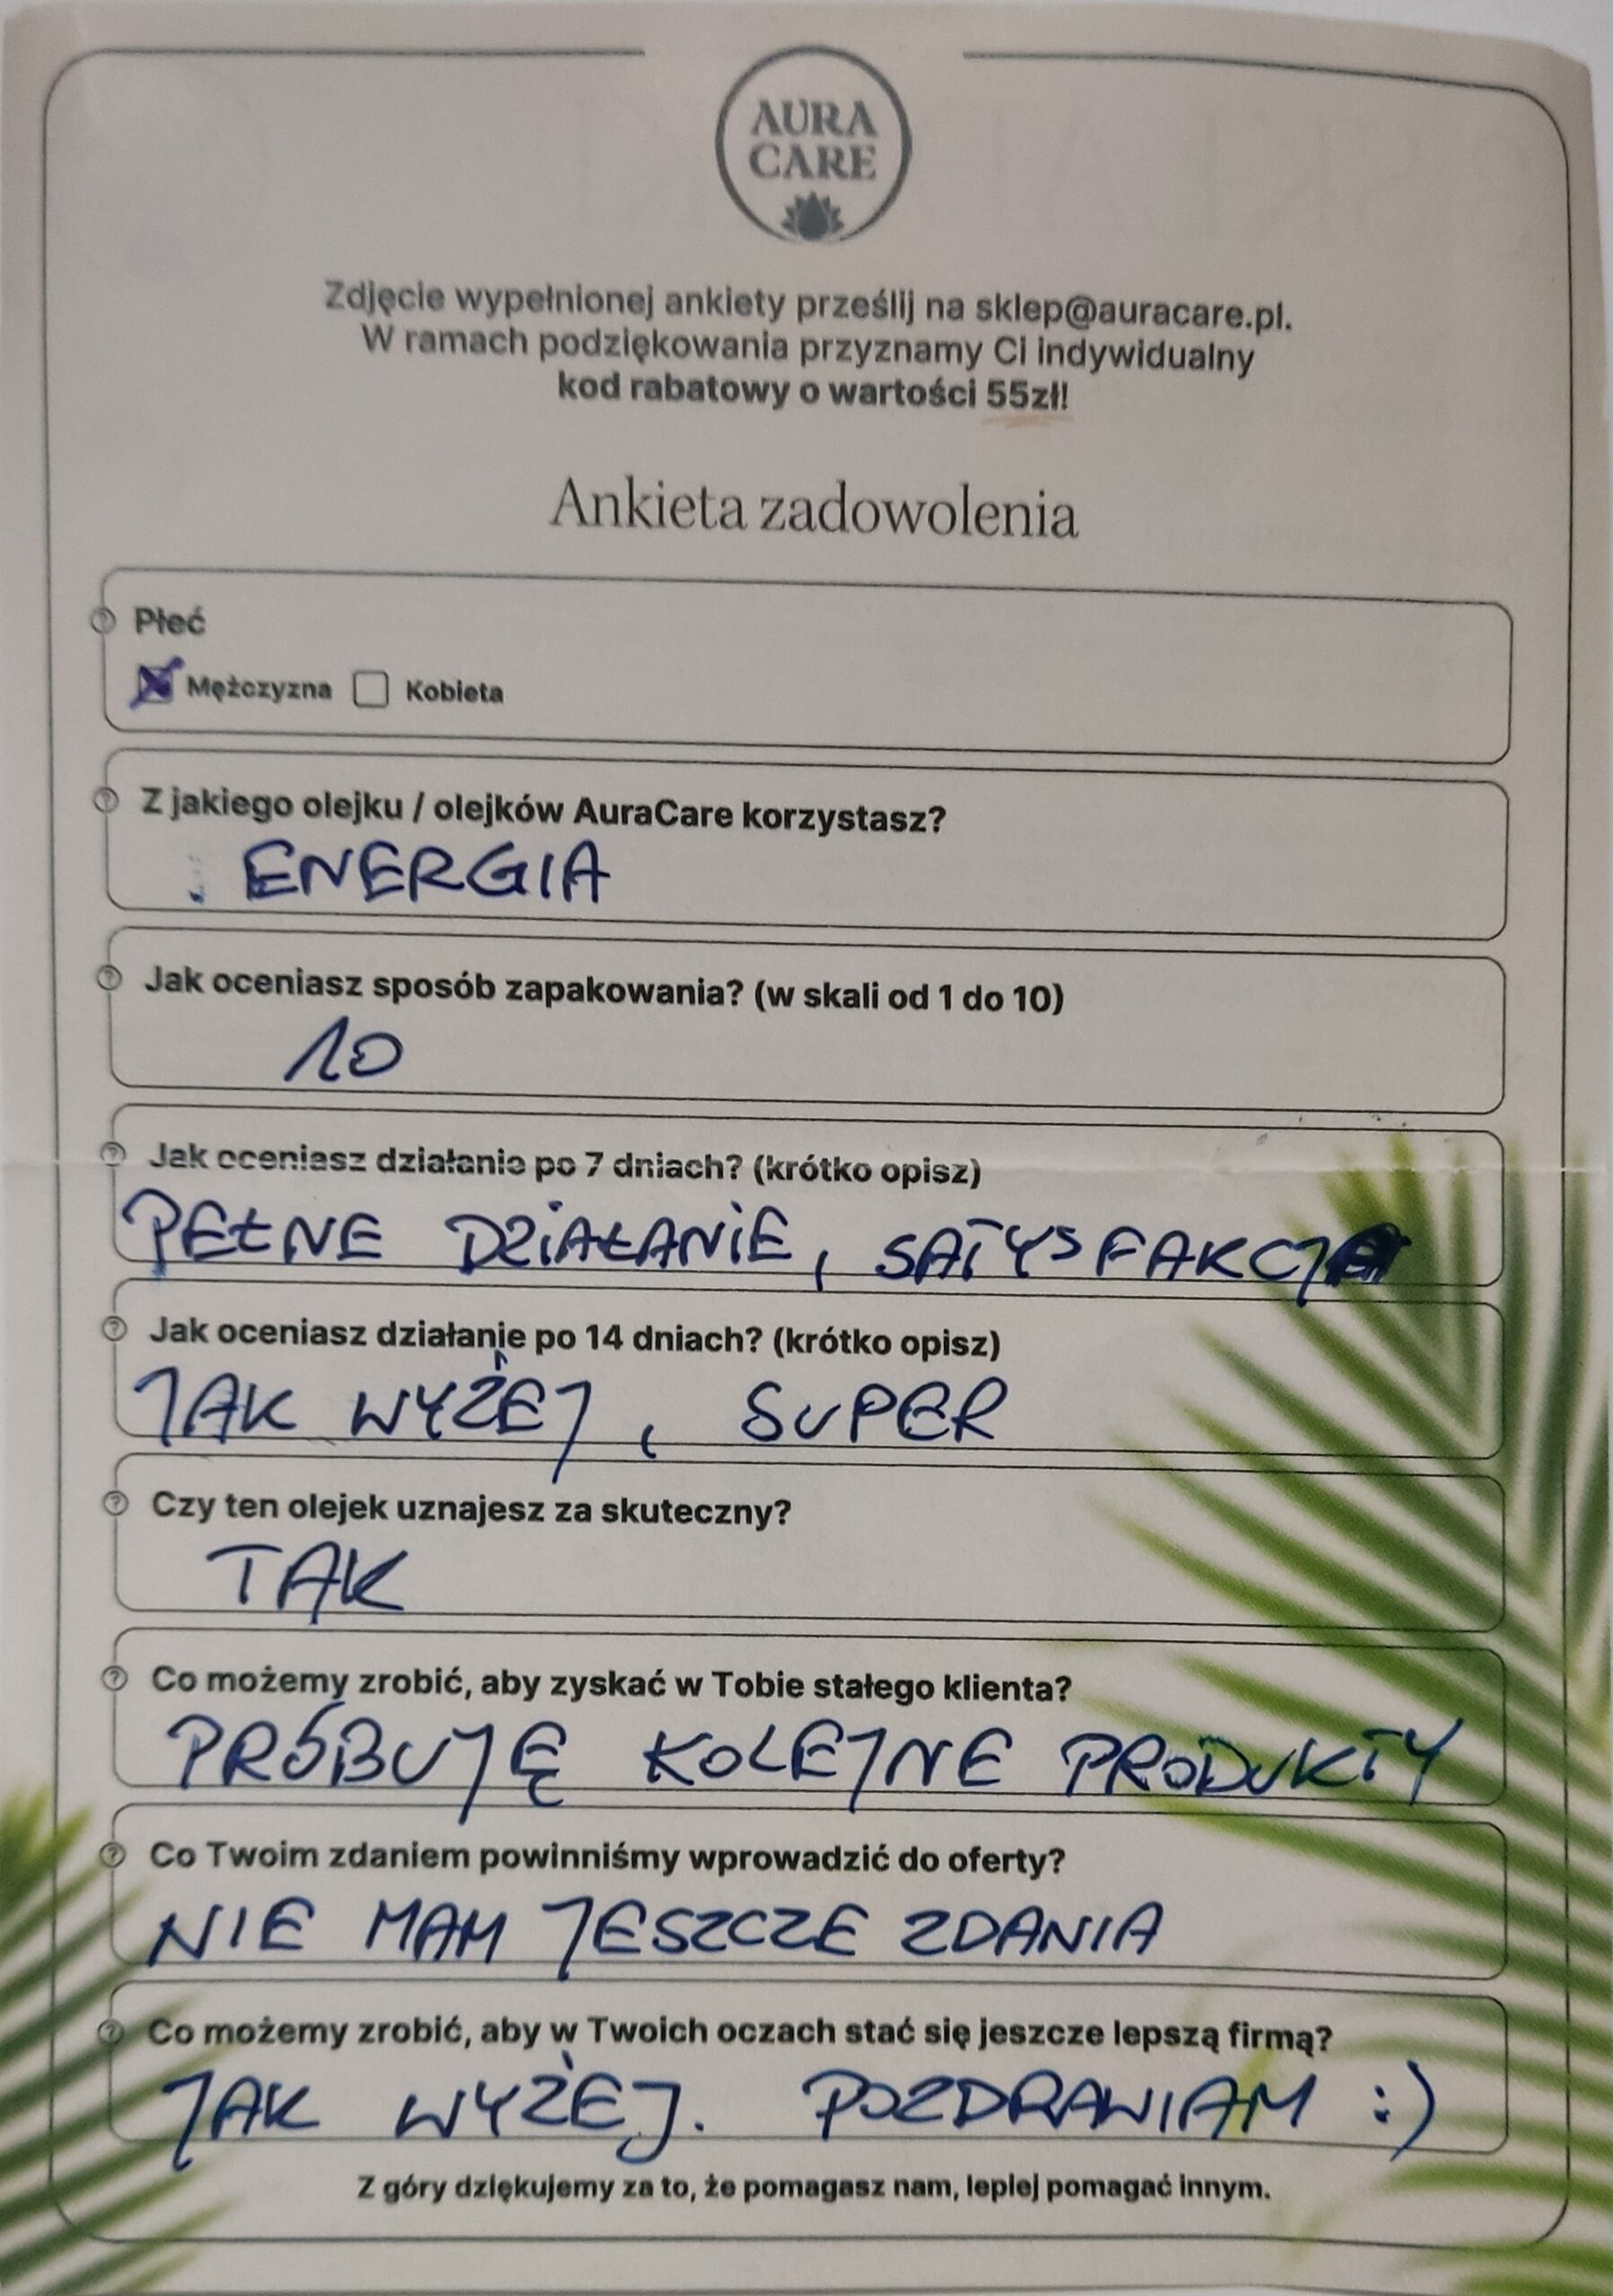 AURA
CARE
Zdjęcie wypełnionej ankiety prześlij na sklep@auracare.pl.
W ramach podziękowania przyznamy Ci indywidualny
kod rabatowy o wartości 55zł!
Ankieta zadowolenia
Płeć
Mężczyzna Kobieta
Z jakiego olejku / olejków AuraCare korzystasz?
ENERGIA
Jak oceniasz sposób zapakowania? (w skali od 1 do 10)
10
Jak oceniasz działanie po 7 dniach? (krótko opisz)
PEŁNE DZIAŁANIE, SATYSFAKCJA
Jak oceniasz działanie po 14 dniach? (krótko opisz)
JAK WYŻEJ, SUPER
Czy ten olejek uznajesz za skuteczny?
TAK
Co możemy zrobić, aby zyskać w Tobie stałego klienta?
PRÓBUJĘ KOLEJNE PRODUKTY
Co Twoim zdaniem powinniśmy wprowadzić do oferty?
NIE MAM JESZCZE ZDANIA
Co możemy zrobić, aby w Twoich oczach stać się jeszcze lepszą firmą?
JAK WYŻEJ. POZDRAWIAM :)
Z góry dziękujemy za to, że pomagasz nam, lepiej pomagać innym.